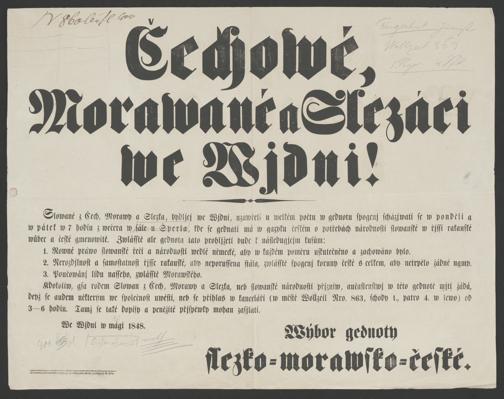 Čechowé,
Morawané a Slezáci
we Wjdni!
Slowané z Čech, Morawy a Slezka, bydljcý we Wjdni, uzawřeli u welkém počtu w gednotu spogeni scházýwati se w pondělj a
w pátek w 7 hodin z wečera w sále u Sperla, kde se gednati má w gazyku českém o potřebách národnosti slowanské w řjšsi rakauské
wůbec a české gmenowitě. Zwláště ale gednota tato probljžeti bude k následugjcým kusům:
1. Rowné práwo slowanské řeči a národnosti wedlé německé, aby w každém poměru uskutečněno a zachowáno bylo.
2. Nerozdjlnost a samostatnost řjšse rakauské, aby neporušena stála, zwláště spogenj koruny české s celkem, aby netrpělo žádné ugmy.
3. Ponaučenj lidu našeho, zwláště Morawského.
Kdokoliw, gsa rodem Slowan z Čech, Morawy a Slezka, neb slowanské národnosti přjzniw, aučastenstwj w této gednotě mjti žádá,
degž se audem některým we společnost uwésti, neb se přihlas w kanceláři (w městě Wollzeil Nro. 863, schody 1, patro 4. w lewo) od
3—6 hodin. Tamž se také dopisy a peněžité přjspěwky mohau zasýlati.
We Wjdni w mági 1848.
Wýbor gednoty
slezko=morawsko=české.